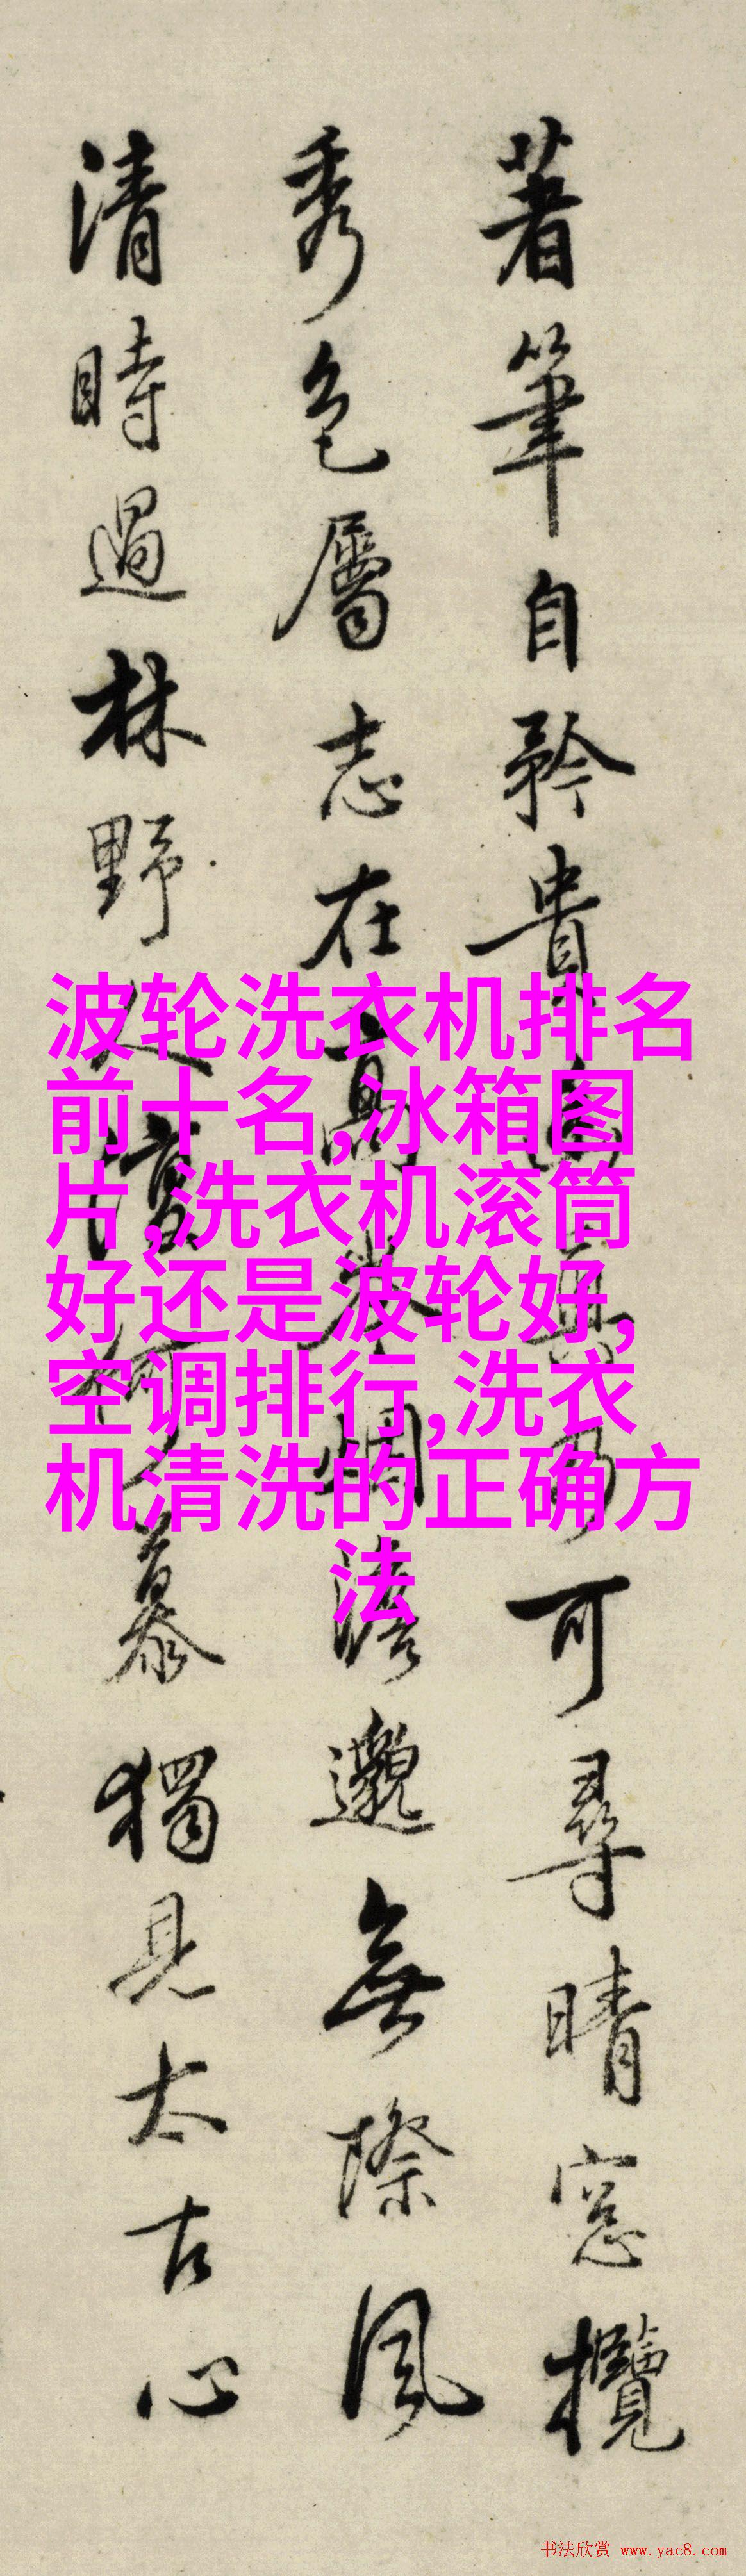 著筆自矜貴興可尋晴窓攬
秀色屬志在高岑烟澹邈無際風
清時過林野人何慕獨見太古心
波轮洗衣机排名
前十名,冰箱图
片,洗衣机滚筒
好还是波轮好,
空调排行,洗衣
机清洗的正确方
法
书法欣赏 www.yac8.com